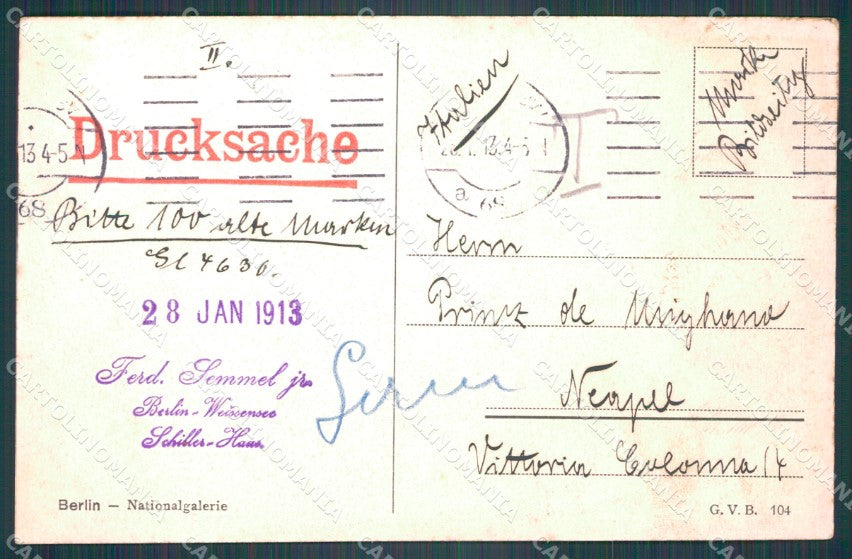 II.
Drucksache
13 4-5 N
68
Bitte 100 alte Marken
28 JAN 1913
Ferd. Semmel jr.
Berlin-Weissensee
Schiller-Haus
Berlin — Nationalgalerie
Italien
13. 4-5 N
a
68
T
Marke
Bildseitig
Herrn
Prinz de
Neapel
Vittoria Colonna 14
G. V. B. 104
CARTOLINOMANIA